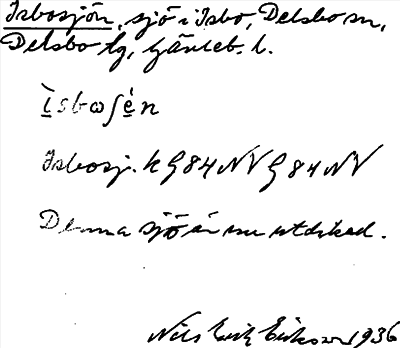 Isbosjön, sjö i Isbo, Delsbo sn,
Delsbo tg, Gävleb. l.
ìsbωʃén
Isbosj. k G84NV G84NV
Denna sjö är nu utdikad.
Nils Erik Eriksson 1936